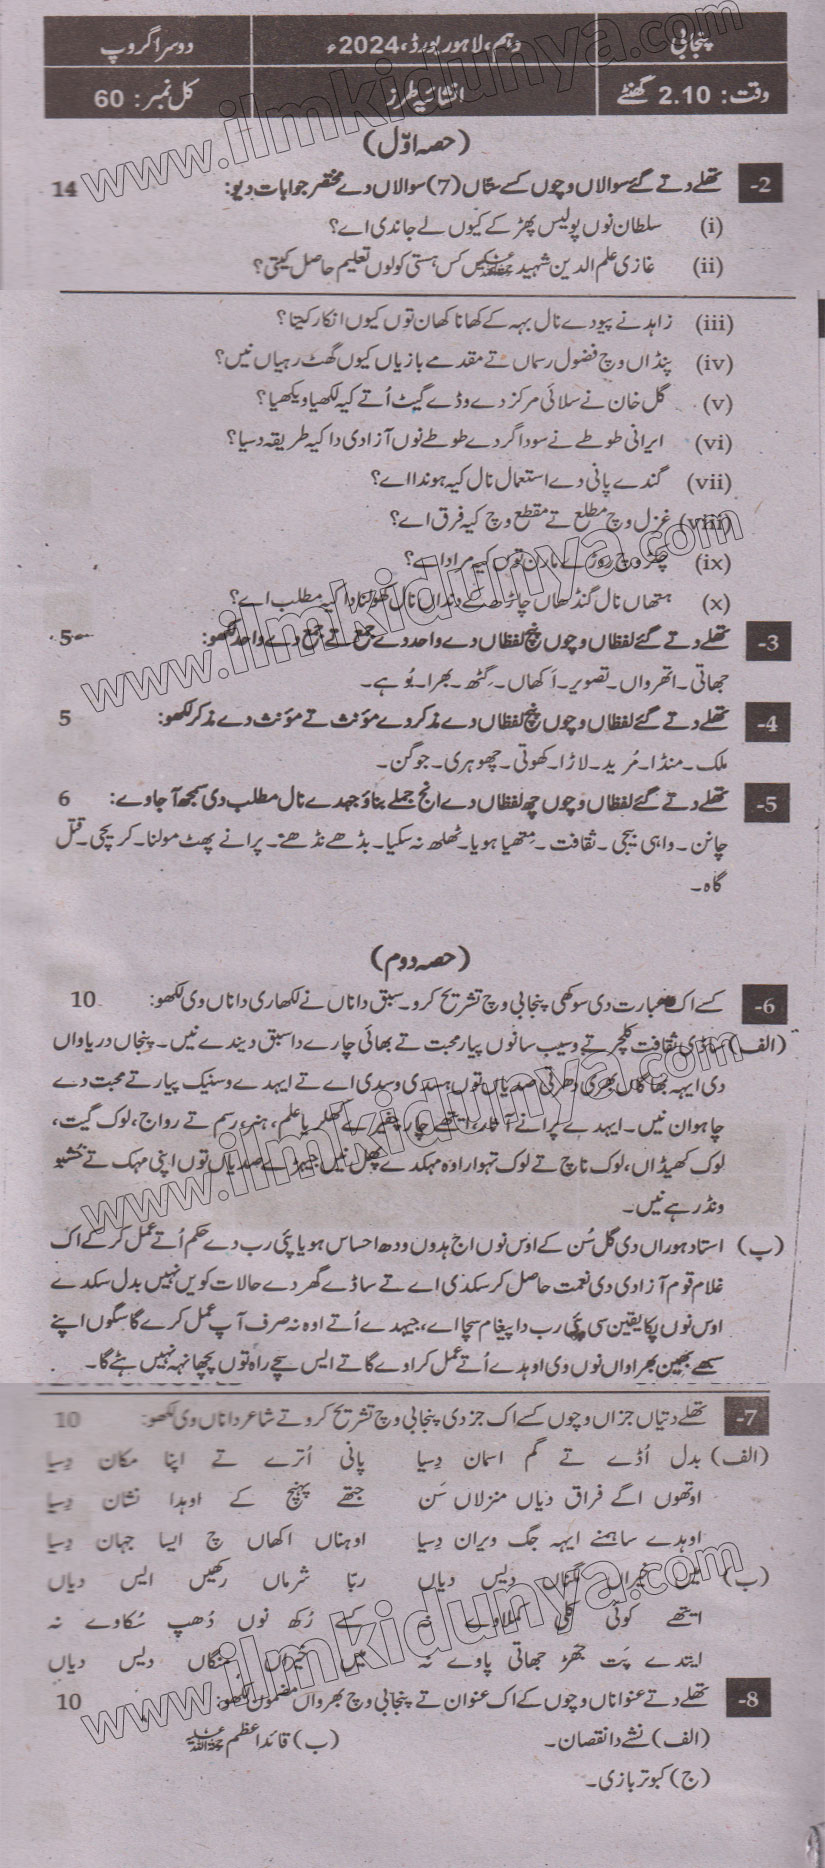 پنجابی
دہم، لاہور بورڈ، 2024ء
دوسرا گروپ
وقت: 2.10 گھنٹے
انشائیہ طرز
کل نمبر: 60
(حصہ اوّل)
2- تھلے دتے گئے سوالاں وچوں کسے ستاں (7) سوالاں دے مختصر جوابات دیو: 14
(i) سلطان نوں پولیس پھڑ کے کیوں لے جاندی اے؟
(ii) غازی علم الدین شہید کس ہستی کولوں تعلیم حاصل کیتی؟
(iii) زاہد نے پیو دے نال بہہ کے کھانا کھان توں کیوں انکار کیتا؟
(iv) پنڈاں وچ فضول رسماں تے مقدمے بازیاں کیوں گھٹ رہیاں نیں؟
(v) گل خان نے سلائی مرکز دے وڈے گیٹ اُتے کیہ لکھیا ویکھیا؟
(vi) ایرانی طوطے نے سوداگر دے طوطے نوں آزادی دا کیہ طریقہ دسیا؟
(vii) گندے پانی دے استعمال نال کیہ ہوندا اے؟
(viii) غزل وچ مطلع تے مقطع وچ کیہ فرق اے؟
(ix) چھڑ وچ روڑے مارن توں کیہ مراد اے؟
(x) ہتھاں نال گنڈھاں چاڑھ کے دنداں نال کھولنا دا کیہ مطلب اے؟
3- تھلے دتے گئے لفظاں وچوں پنج لفظاں دے واحد دے جمع تے جمع دے واحد لکھو: 5
جھاتی۔ اتھرواں۔ تصویر۔ اَکھاں۔ گٹھ۔ بھرا۔ بُوہے۔
4- تھلے دتے گئے لفظاں وچوں پنج لفظاں دے مذکر دے مؤنث تے مؤنث دے مذکر لکھو: 5
ملک۔ منڈا۔ مُرید۔ لاڑا۔ کھوتی۔ چھوہری۔ جوگن۔
5- تھلے دتے گئے لفظاں وچوں چھ لفظاں دے انج جملے بناؤ جہدے نال مطلب دی سمجھ آجاوے: 6
چانن۔ واہی بیجی۔ ثقافت۔ مِتھیا ہویا۔ ٹھلھ نہ سکیا۔ بڈھے نڈھے۔ پرانے پھٹ مولنا۔ کریچی۔ قتل
گاہ۔
(حصہ دوم)
6- کسے اک عبارت دی سوکھی پنجابی وچ تشریح کرو۔ سبق دا ناں نے لکھاری دا ناں وی لکھو: 10
(الف) ساڈی ثقافت کلچر تے وسیب سانوں پیار محبت تے بھائی چارے دا سبق دیندے نیں۔ پنجاں دریاواں
دی ایہہ بھاگاں بھری دھرتی صدیاں توں ہسدی وسدی اے تے ایہدے وسنیک پیار تے محبت دے
چاہوان نیں۔ ایہدے پرانے آثار، ایتھے چار چفیرے کھلریا علم، ہنر، رسم تے رواج، لوک گیت،
لوک کھیڈاں، لوک ناچ تے لوک تہوار اوہ مہکدے پھل نیں جیہڑے صدیاں توں اپنی مہک تے خشبو
ونڈ رہے نیں۔
(ب) استاد ہوراں دی گل سُن کے اوس نوں اج ہدوں ودھ احساس ہویا پئی رب دے حکم اُتے عمل کر کے اک
غلام قوم آزادی دی نعمت حاصل کر سکدی اے تے ساڈے گھر دے حالات کویں نہیں بدل سکدے
اوس نوں پکا یقین سی پئی رب دا پیغام سچا اے، جیہدے اُتے اوہ نہ صرف آپ عمل کرے گا سگوں اپنے
سبھے بھین بھراواں نوں وی اوہدے اُتے عمل کراوے گا تے ایس سچے راہ توں پچھانہہ نہیں ہٹے گا۔
7- تھلے دتیاں جزاں وچوں کسے اک جز دی پنجابی وچ تشریح کرو تے شاعر دا ناں وی لکھو: 10
(الف) بدل اُڈے تے گم اسمان دِسیا پانی اُترے تے اپنا مکان دِسیا
اوتھوں اگے فراق دیاں منزلاں سَن جتھے پہنچ کے اوہدا نشان دِسیا
اوہدے ساہمنے ایہہ جگ ویران دِسیا اوہناں اکھاں چ ایسا جہان دِسیا
(ب) میں خیراں منگناں دیس دیاں ربّا شرماں رکھیں ایس دیاں
ایتھے کوئی کلی کملاوے نہ کسے رُکھ نوں دُھپ سُکاوے نہ
ایتدے پَت جھڑ جھاتی پاوے نہ میں خیراں منگاں دیس دیاں
8- تھلے دتے عنواناں وچوں کے اک عنوان تے پنجابی وچ بھرواں مضمون لکھو: 10
(الف) نشے دا نقصان۔ (ب) قائداعظم
(ج) کبوتر بازی۔
www.ilmkidunya.com
www.ilmkidunya.com
www.ilmkidunya.com
www.ilmkidunya.com